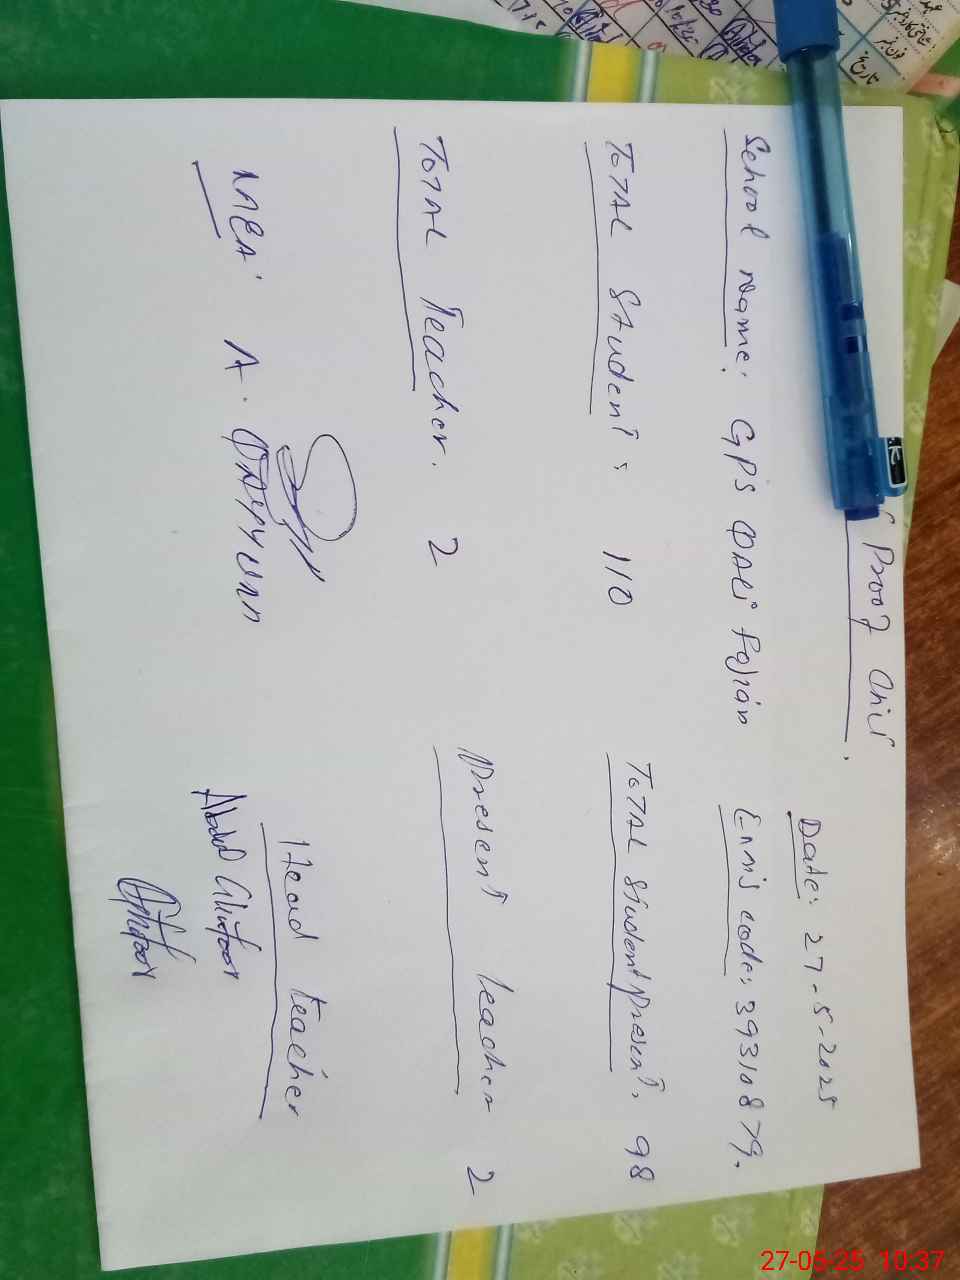 Proof Chit.
Date: 27-5-2025
School name: GPS Qali Pojian Emis code: 39310879.
Total Student: 110 Total Student Present: 98
Total Teacher. 2 Present teacher 2
MEA: A. Qayyum
Head teacher
Abdul Ghafoor
Ghafoor
27-05-25 10:37